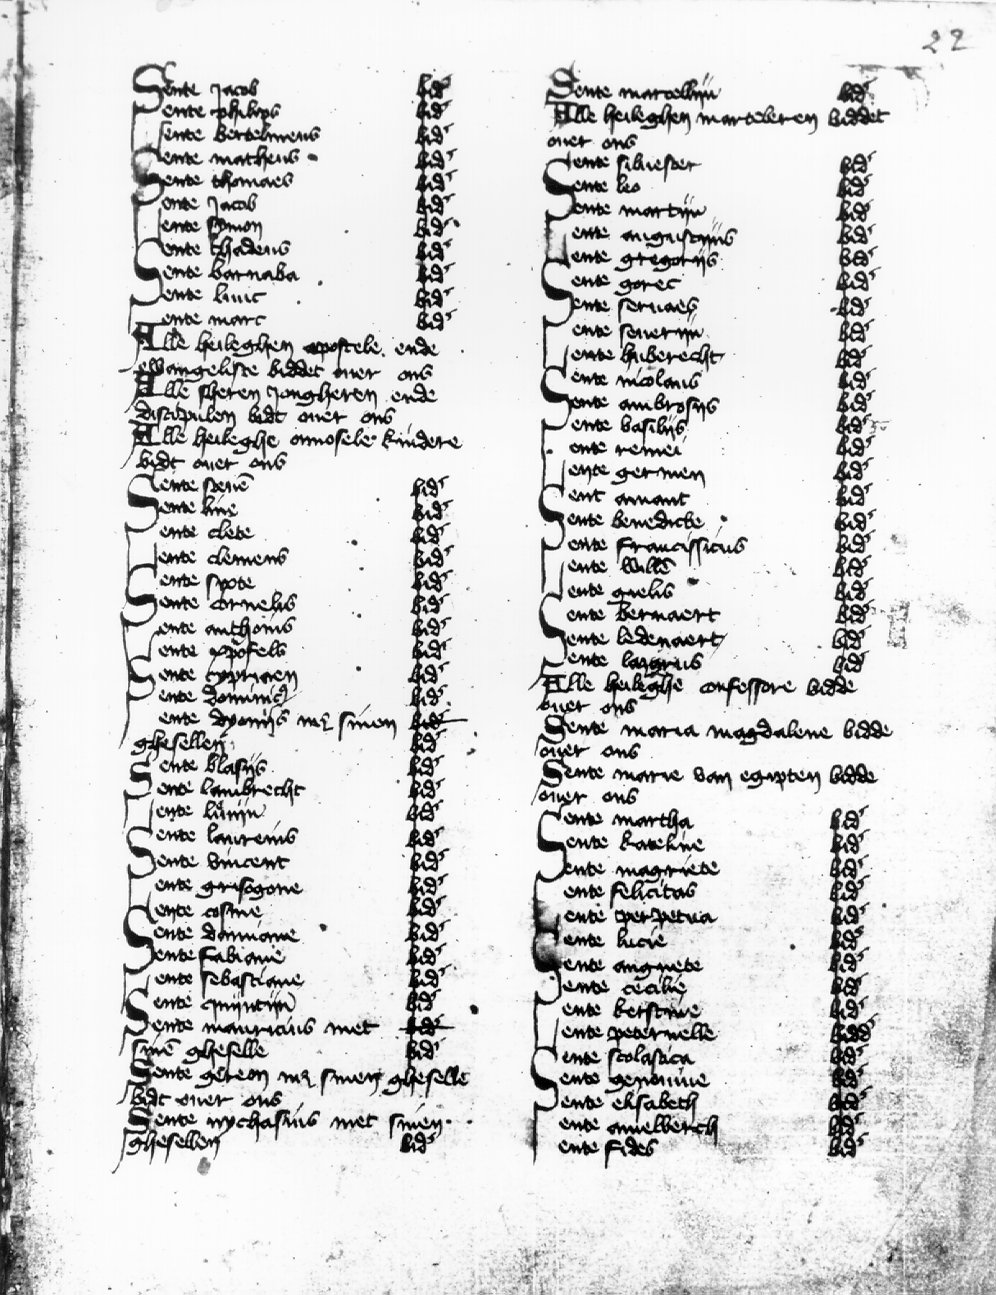 22
Sente Jacob bid'
Sente philips bid'
Sente bertelmeus bid'
Sente matheus bid'
Sente thomaes bid'
Sente Jacob bid'
Sente symon bid'
Sente thadeus bid'
Sente barnaba bid'
Sente luuc bid'
Sente marc bid'
Alle heileghen apostele ende
ewangeliste biddet ouer ons
Alle sheren Jongheren ende
discipulen bidt ouer ons
Alle heileghe onnosele kindere
bidt ouer ons
Sente steuē bid'
Sente line bid'
Sente clete bid'
Sente clemens bid'
Sente sixte bid'
Sente cornelis bid'
Sente anthonis bid'
Sente xpofels bid'
Sente cypriaen bid'
Sente dominic' bid'
Sente dyonijs met sinen bid'
ghesellen bid'
Sente blasijs bid'
Sente lambrecht bid'
Sente liuijn bid'
Sente laureins bid'
Sente vincent bid'
Sente grisogone bid'
Sente cosme bid'
Sente damiane bid'
Sente fabiane bid'
Sente sebastiane bid'
Sente quijntijn bid'
Sente mauricius met bid'
sinē gheselle bid'
Sente gereon met sinen gheselle
bidt ouer ons
Sente nychasius met sinen
ghesellen bid'
Sente marcellijn bid'
Alle heileghen marteleren biddet
ouer ons
Sente siluester bid'
Sente leo bid'
Sente martijn bid'
Sente augustijns bid'
Sente gregorijs bid'
Sente goric bid'
Sente seruaes bid'
Sente seuerijn bid'
Sente huberecht bid'
Sente nicolaus bid'
Sente ambrosijs bid'
Sente basilijs bid'
Sente remei bid'
Sente germen bid'
Sent amant bid'
Sente benedicte bid'
Sente francissicus bid'
Sente willē bid'
Sente gielis bid'
Sente bernaert bid'
Sente ledenaert bid'
Sente lazarus bid'
Alle heileghe confessore bidde
ouer ons
Sente maria magdalene bidde
ouer ons
Sente marie van egipten bidde
ouer ons
Sente martha bid'
Sente kateline bid'
Sente magriete bid'
Sente felicitas bid'
Sente perpetua bid'
Sente lucie bid'
Sente angnete bid'
Sente cecilie bid'
Sente kerstine bid'
Sente peternelle bidd'
Sente scolastica bid'
Sente genouiue bid'
Sente elisabeth bid'
Sente amelberch bid'
Sente fides bid'